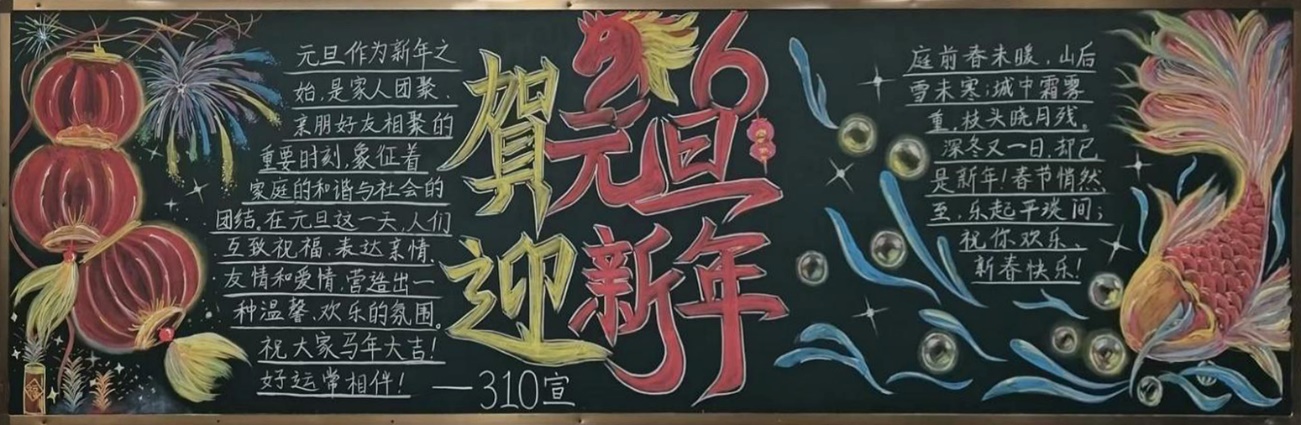 元旦作为新年之
始，是家人团聚、
亲朋好友相聚的
重要时刻，象征着
家庭的和谐与社会的
团结。在元旦这一天，人们
互致祝福，表达亲情、
友情和爱情，营造出一
种温馨、欢乐的氛围。
祝大家马年大吉！
好运常相伴！
贺元旦
迎新年
—310宣
庭前春未暖，山后
雪未寒；城中霜雾
重，枝头晓月残。
深冬又一日，却已
是新年！春节悄然
至，乐起平琰间；
祝你欢乐、
新春快乐！